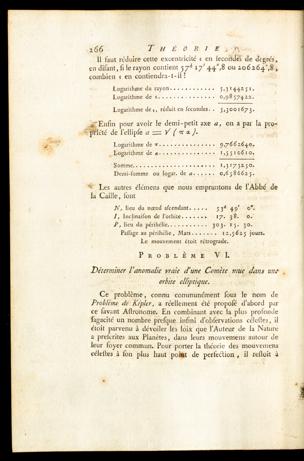 266 THÉORIE
Il faut réduire cette excentricité ε en secondes de degrés,
en disant, si le rayon contient 57ᵈ 17′ 44″,8 ou 206264″,8,
combien ε en contiendra-t-il!
Logarithme du rayon........... 5,3144251.
Logarithme de ε.............. 9,9857422.
Logarithme de ε, réduit en secondes.. 5,3001673.
Enfin pour avoir le demi-petit axe α, on a par la pro-
priété de l'ellipse α = √(πa).
Logarithme de π.............. 9,7662640.
Logarithme de a.............. 1,5510610.
Somme.................... 1,3173250.
Demi-somme ou logar. de α...... 0,6586625.
Les autres élémens que nous empruntons de l'Abbé de
la Caille, sont
N, lieu du nœud ascendant..... 53ᵈ 49′ 0″.
I, Inclinaison de l'orbite...... 17. 38. 0.
P, lieu du périhélie.......... 303. 15. 30.
Passage au périhélie, Mars....... 12,5625 jours.
Le mouvement étoit rétrograde.
PROBLÈME VI.
Déterminer l'anomalie vraie d'une Comète mue dans une
orbite elliptique.
Ce problème, connu communément sous le nom de
Problème de Képler, a réellement été proposé d'abord par
ce savant Astronome. En combinant avec la plus profonde
sagacité un nombre presque infini d'observations célestes, il
étoit parvenu à dévoiler les loix que l'Auteur de la Nature
a prescrites aux Planètes, dans leurs mouvemens autour de
leur foyer commun. Pour porter la théorie des mouvemens
célestes à son plus haut point de perfection, il restoit à